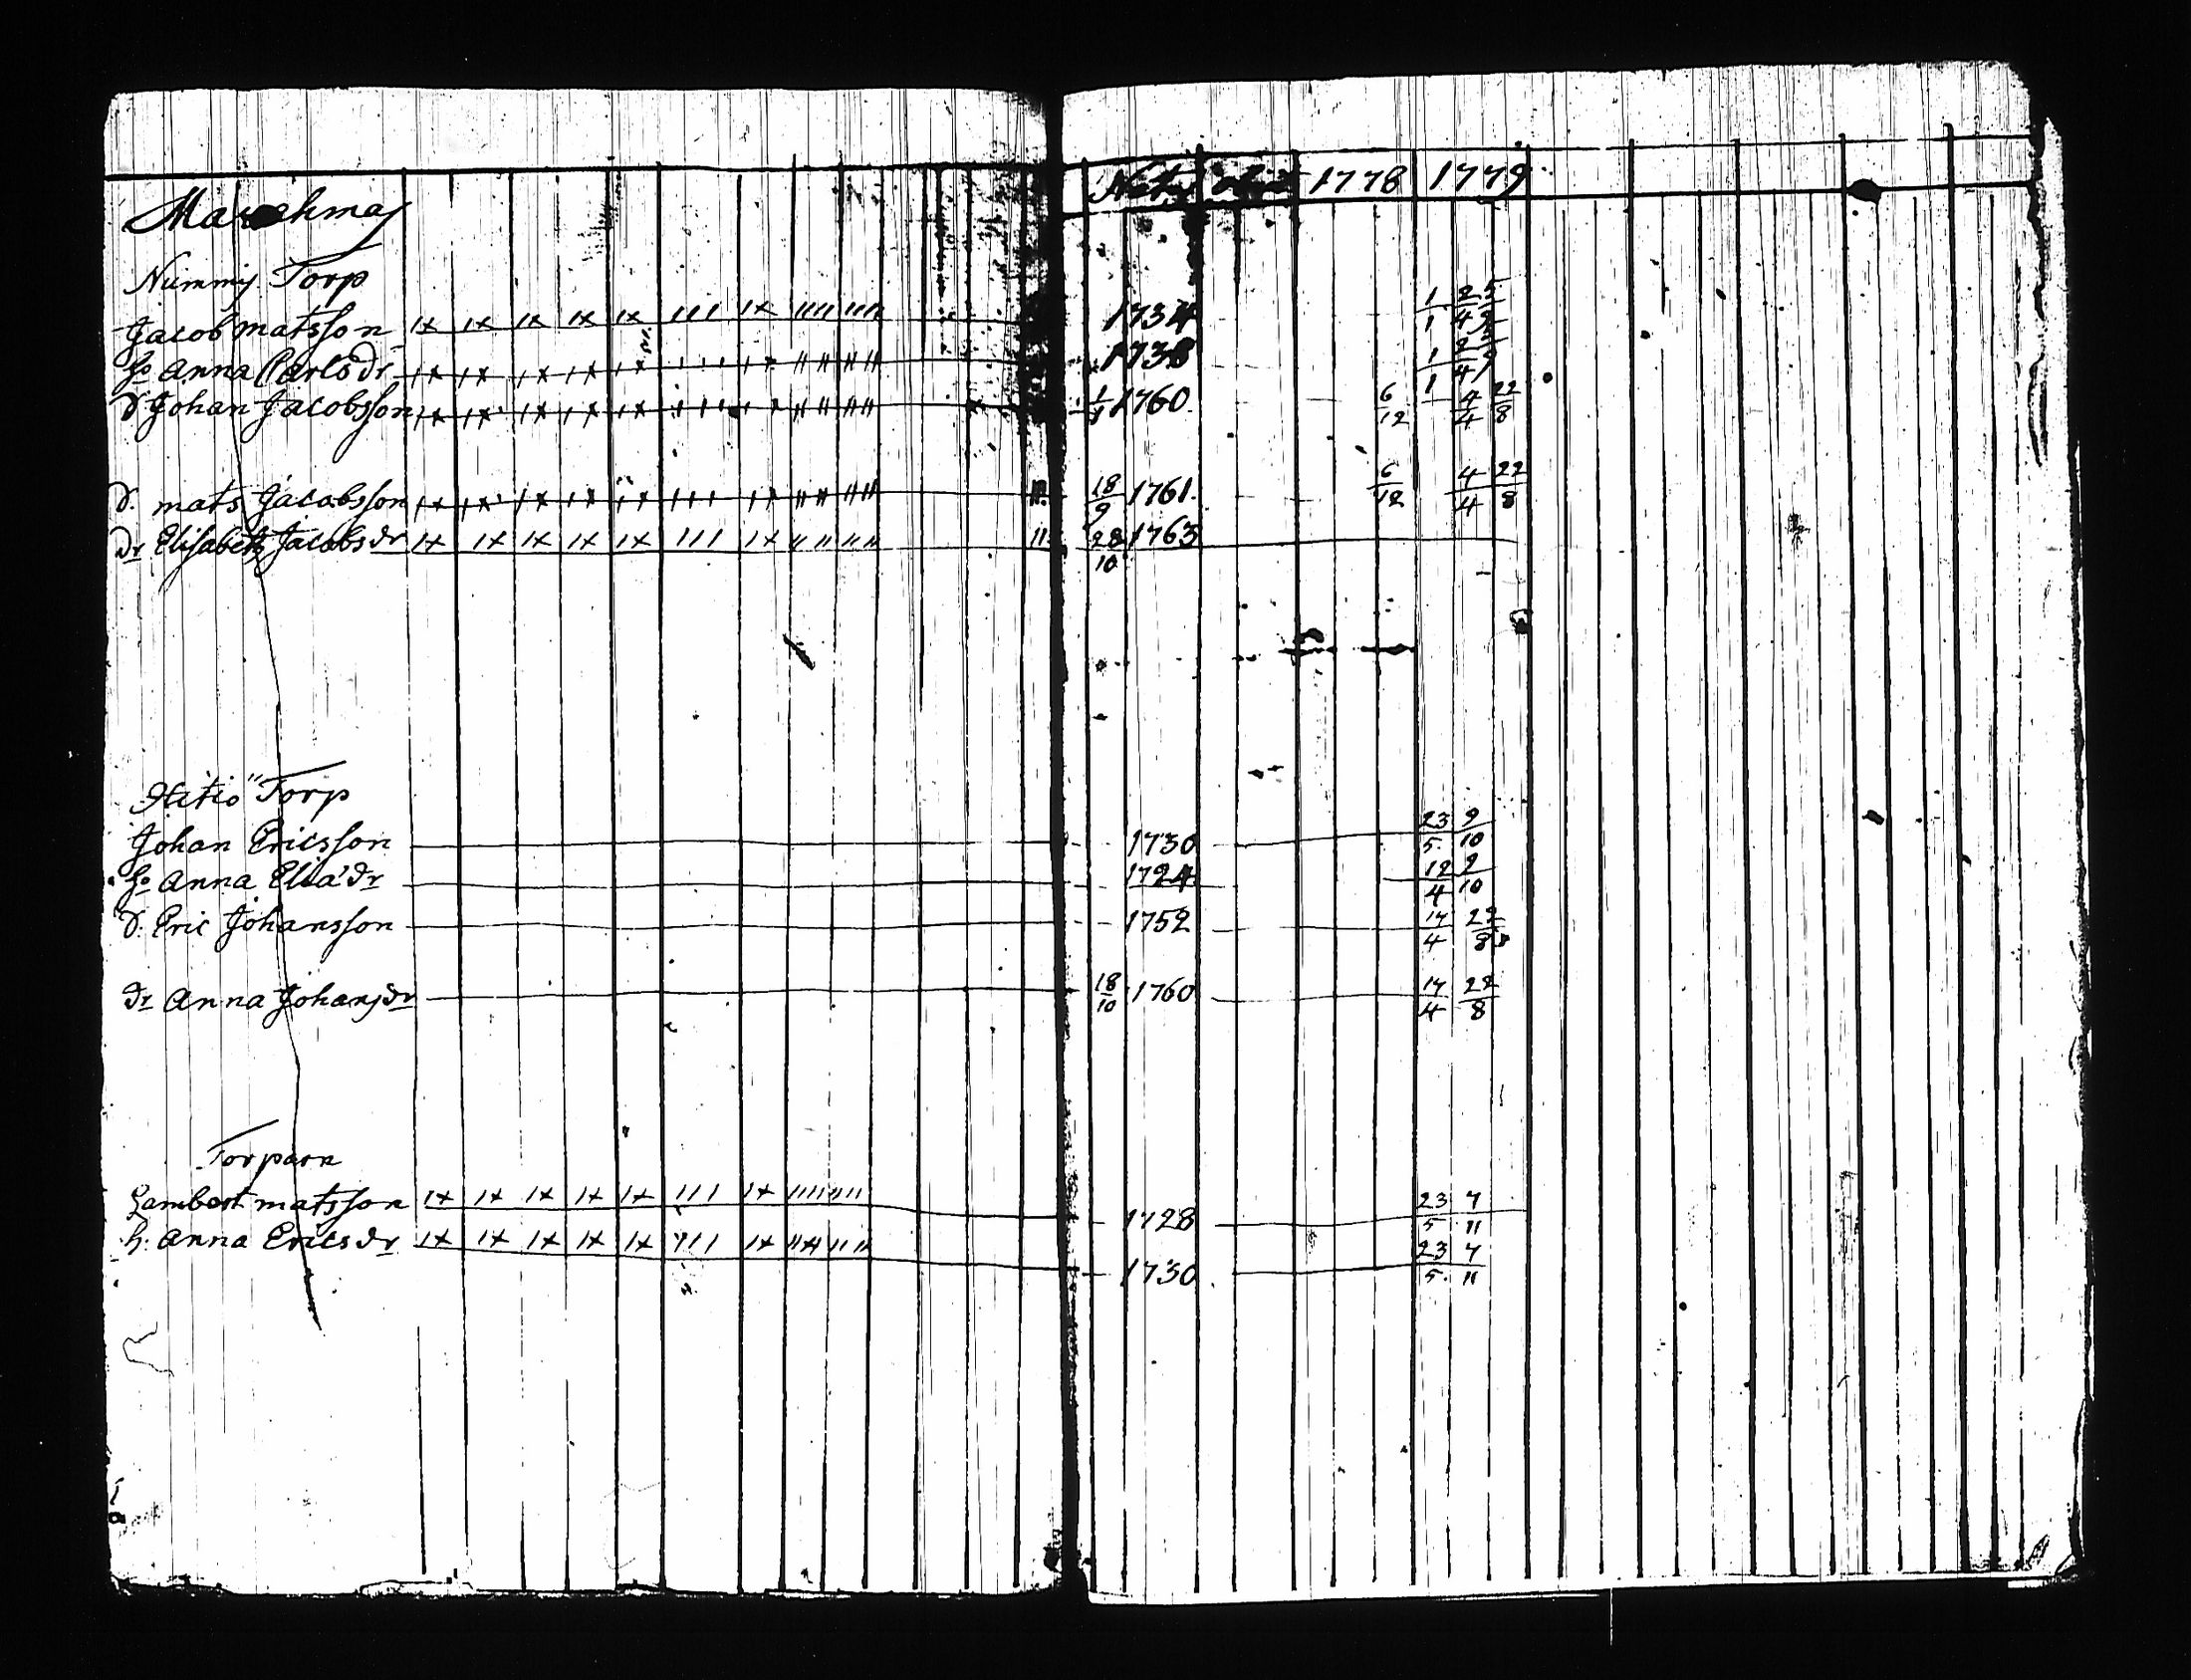 Natus obiit 1778 1779
Nummis Torp
Jacob Matsson 1x 1x 1x 1x 1x 111 1x 1111 1111 1734 1/1 2/4
ho Anna Carlsdr 1x 1x 1x 1x 1x 111 1x 1111 1111 1738 1/1
d Johan Jacobsson 1x 1x 1x 1x 1x 111 1x 1111 1111 1760 6/12 4/4 22/8
d. Mats Jacobsson 1x 1x 1x 1x 1x 111 1x 1111 1111 18/9 1761 6/12 4/4 22/8
dr Elisabeth Jacobsdr 1x 1x 1x 1x 1x 111 1x 1111 1111 11 28/10 1763
Torp
Johan Ericsson 1730 23/5 9/10
ho Anna Eliadr 1724 12/4 9/10
d. Eric Johansson 1752 17/4 22/8
dr Anna Johansdr 18/10 1760 17/4 22/8
Torparn
Lambert Matsson 1x 1x 1x 1x 1x 111 1x 1111 1111 1728 23/5 7/11
h. Anna Ericsdr 1x 1x 1x 1x 1x 111 1x 1111 1111 1730 23/5 7/11